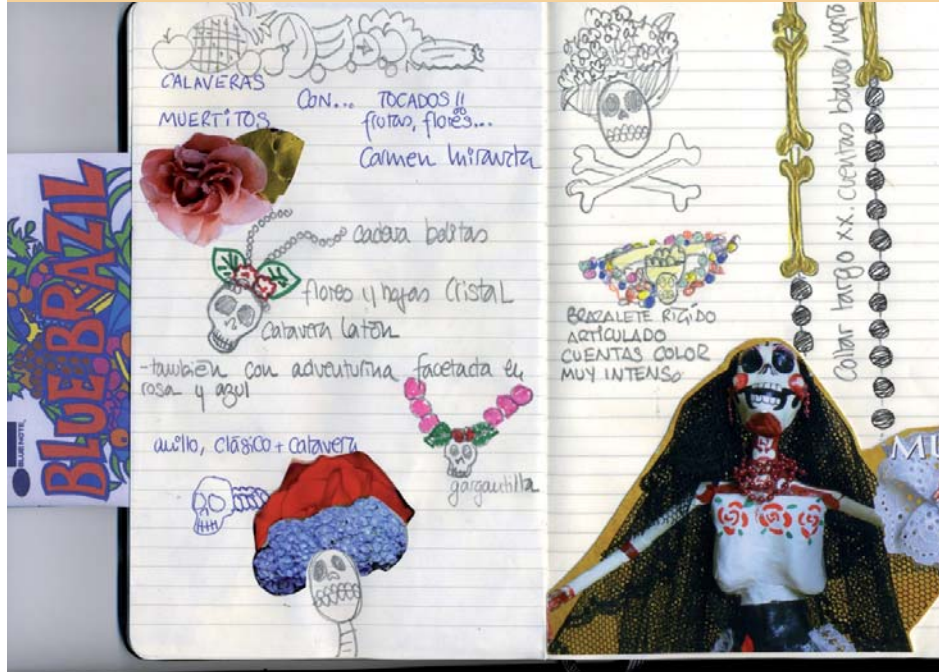 BLUE NOTE
BLUE BRAZIL
CALAVERAS
MUERTITOS
CON... TOCADOS!!
frutas, flores...
Carmen Miranda
cadena bolitas
flores y hojas cristal
calavera latón
-también con adventurina facetada en
rosa y azul
anillo, clásico + calavera
gargantilla
BRAZALETE RIGIDO
ARTICULADO
CUENTAS COLOR
MUY INTENSO
Collar largo xx. cuentas blanco/negro
MU